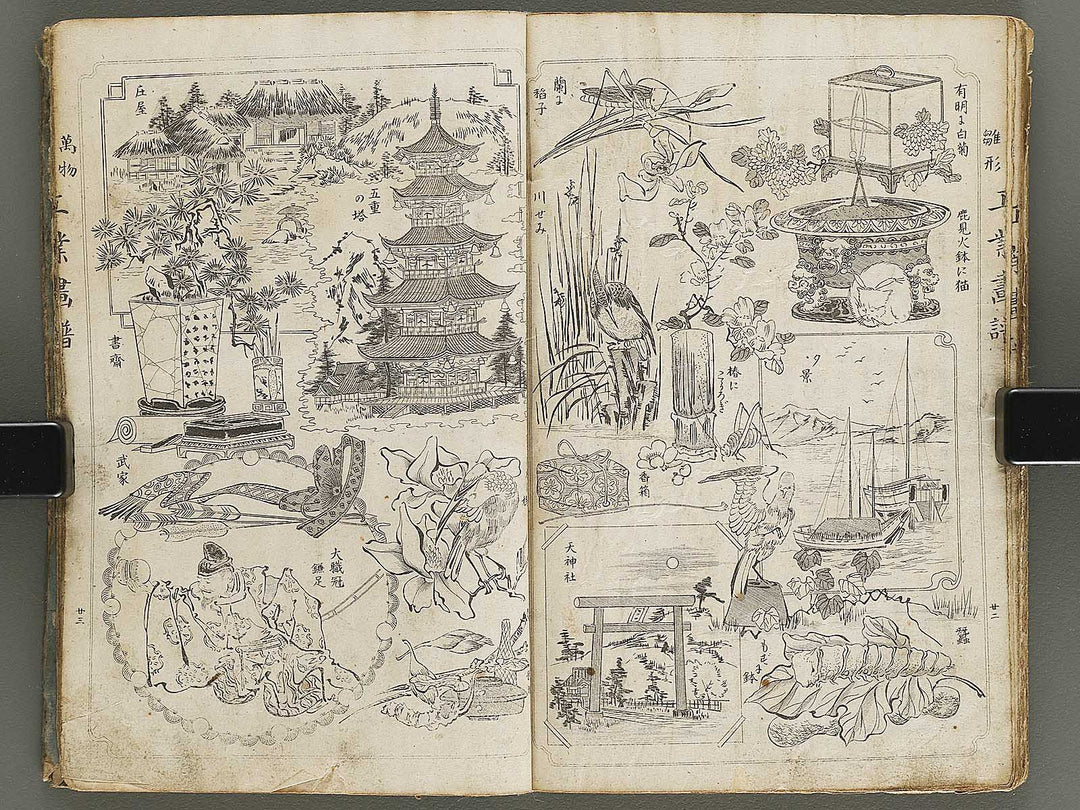 雛形
有明に白菊
鹿見火鉢に猫
蘭に
稲子
川せみ
椿に
こうろぎ
夕景
香箱
天神社
蠶
廿二
萬物
工業畫譜
庄屋
五重
の塔
書齋
武家
大職冠
鎌足
廿三